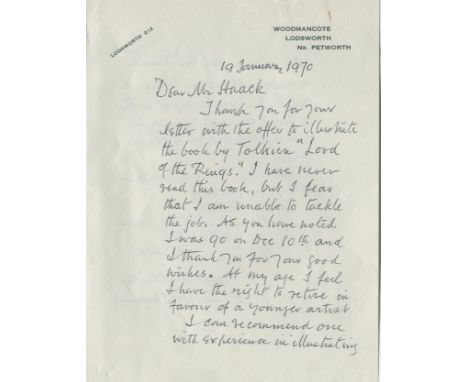 LODSWORTH 212
WOODMANCOTE
LODSWORTH
NR. PETWORTH
19 January, 1970
Dear Mr Haack
Thank you for your
letter with the offer to illustrate
the book by Tolkien "Lord
of the Rings." I have never
read this book, but I fear
that I am unable to tackle
the job. As you have noted
I was 90 on Dec 10th and
I thank you for your good
wishes. At my age I feel
I have the right to retire in
favour of a younger artist
I can recommend one
with experience in illustrating